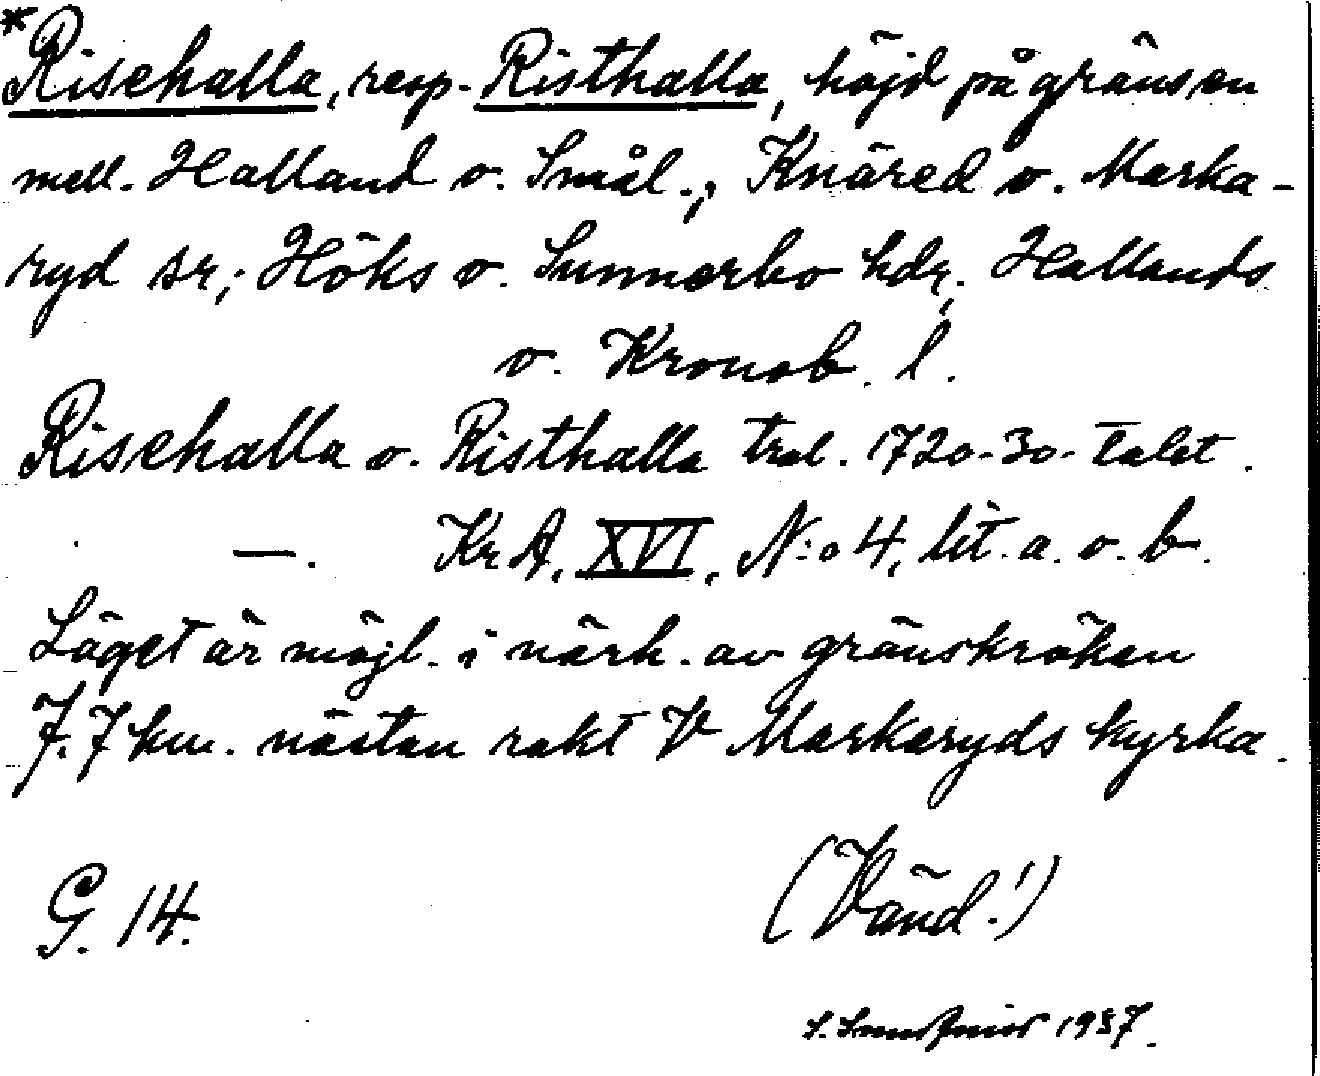 *Risehalla, resp. Risthalla, höjd på gränsen
mell. Halland o. Smål.; Knäred o. Marka-
ryd sr; Höks o. Sunnerbo hdr, Hallands
o. Kronob. l.
Risehalla o. Risthalla trol. 1720-30-talet.
—. KrA, XVI, N:o 4, lit. a. o. b.
Läget är möjl. i närh. av gränskröken
7.7 km. nästan rakt V Markaryds kyrka.
G. 14. (Vänd!)
S. 1937.